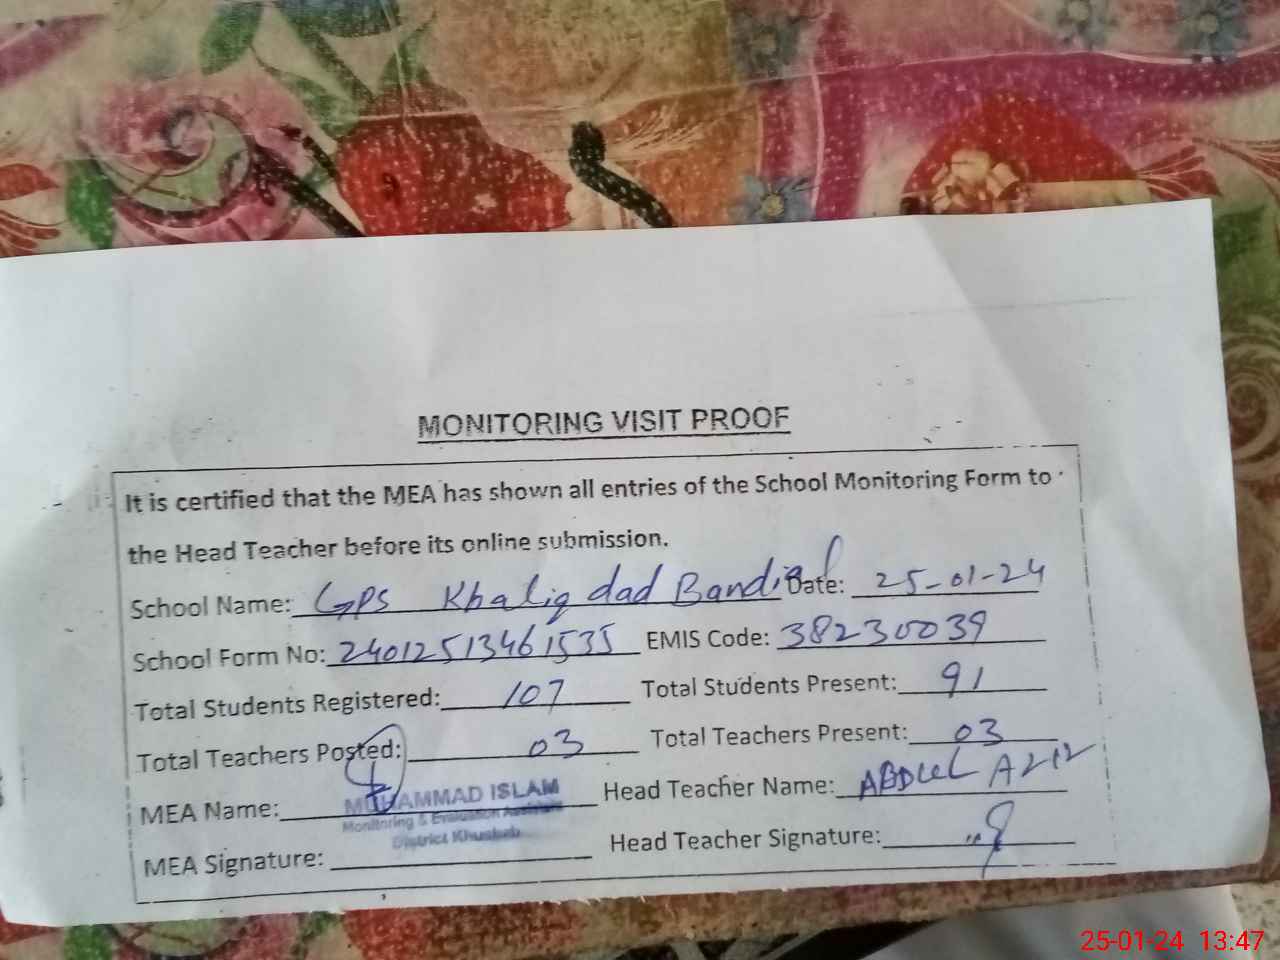 MONITORING VISIT PROOF
It is certified that the MEA has shown all entries of the School Monitoring Form to
the Head Teacher before its online submission.
School Name: GPS Khaliq dad Bandial Date: 25-01-24
School Form No: 24012513461535 EMIS Code: 38230039
Total Students Registered: 107 Total Students Present: 91
Total Teachers Posted: 03 Total Teachers Present: 03
MEA Name: MUHAMMAD ISLAM Head Teacher Name: ABDUL AZIZ
Monitoring & Evaluation Assistant
District Khushab
MEA Signature: Head Teacher Signature:
25-01-24 13:47